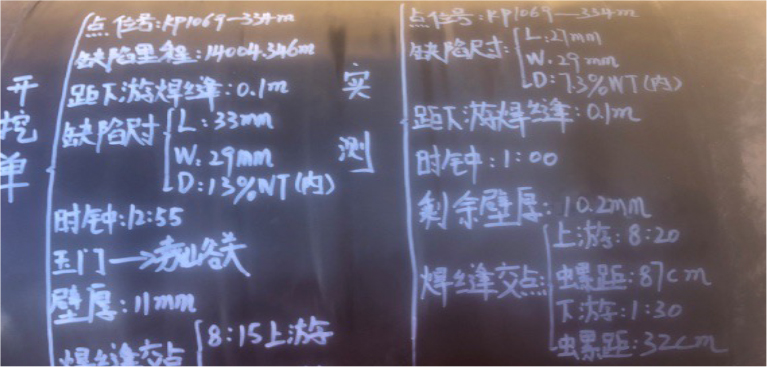 开挖单
点位号:KP1069—334m
缺陷里程:14004.346m
距下游焊缝:0.1m
缺陷尺寸
L:33mm
W:29mm
D:13%WT(内)
时钟:12:55
玉门→嘉峪关
壁厚:11mm
焊缝交点
8:15上游
实测
点位号:KP1069—334m
缺陷尺寸:
L:21mm
W:29mm
D:7.3%WT(内)
距下游焊缝:0.1m
时钟:1:00
剩余壁厚:10.2mm
焊缝交点:
上游:8:20
虫螺距:87cm
下游:1:30
虫螺距:32cm